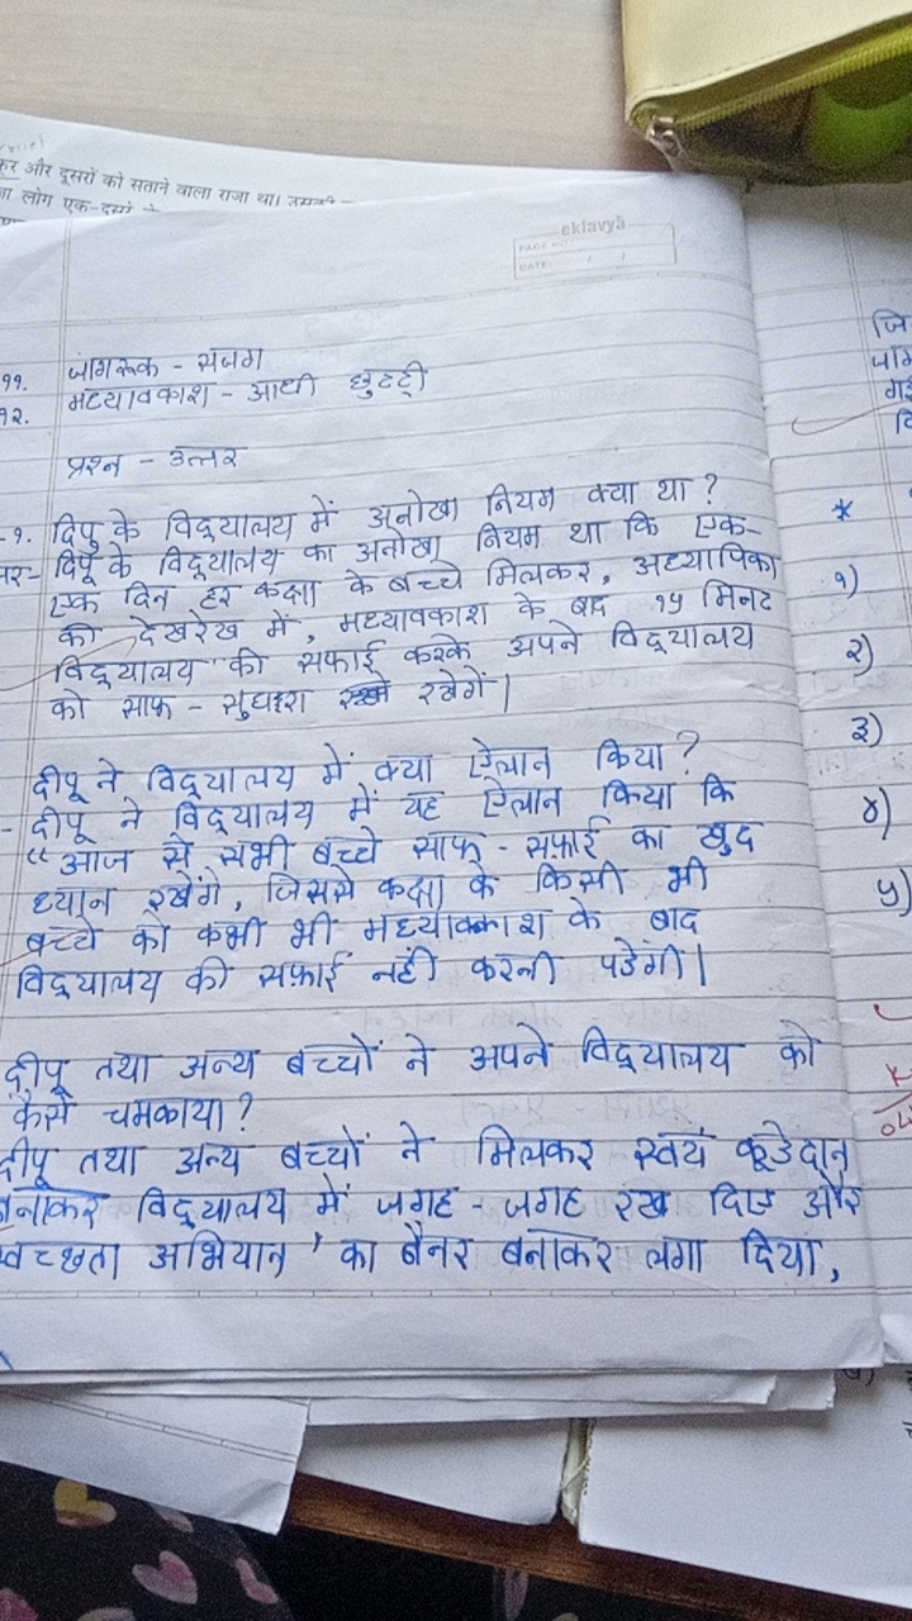 कर और दूसरों को सताने वाला राजा था। उसकी
लोग एक-दूसरे
eklavya
PAGE NO:
DATE: / /
११. जागरूक - सजग
१२. मध्यावकाश - आधी छुटटी
प्रश्न - उत्तर
-१. दिपु के विद्यालय में अनोखा नियम क्या था ?
दिपू के विद्यालय का अनोखा नियम था कि एक-
एक दिन हर कक्षा के बच्चे मिलकर, अध्यापिका
की देखरेख में, मध्यावकाश के बाद १५ मिनट
विद्यालय की सफाई करके अपने विद्यालय
को साफ - सुथरा रखेगें।
दीपू ने विद्यालय में क्या ऐलान किया ?
- दीपू ने विद्यालय में यह ऐलान किया कि
“आज से सभी बच्चे साफ़ - सफ़ाई का खुद
ध्यान रखेंगे, जिससे कक्षा के किसी भी
बच्चे को कभी भी मध्यावकाश के बाद
विद्यालय की सफ़ाई नहीं करनी पडेगीं।
दीपू तथा अन्य बच्चों ने अपने विद्यालय को
कैसे चमकाया ?
दीपू तथा अन्य बच्चों ने मिलकर स्वयं कूडेदान
बनाकर विद्यालय में जगह - जगह रख दिए और
स्वच्छता अभियान ' का बैनर बनाकर लगा दिया,
*
१)
२)
३)
४)
५)